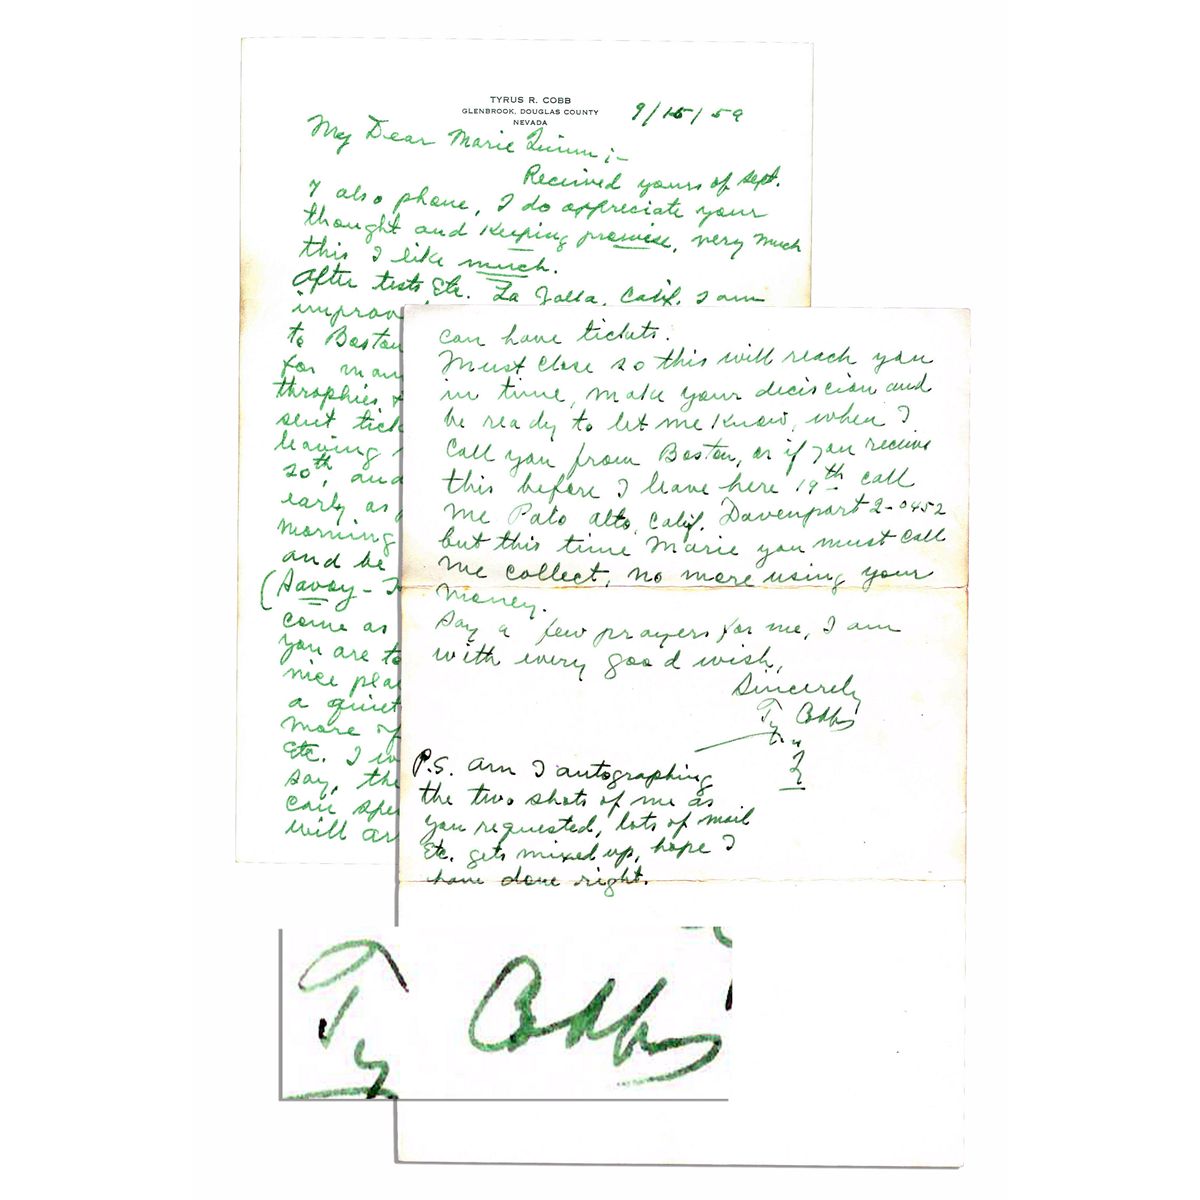 TYRUS R. COBB
GLENBROOK, DOUGLAS COUNTY
NEVADA
9/15/59
My Dear Marie Quinn ;-
Received yours of Sept.
7 also phone, I do appreciate your
thought and Keeping promise, very much
this I like much.
After tests Etc. La Jolla, Calif. I am
improv
to Boston
for man
throphies
sent tick
leaving
20th, and
early as
morning
and be
(Savoy -
come as
you are to
nice plac
a quiet
more of
Etc. I w
say, the
can spe
will ar
can have tickets.
Must close so this will reach you
in time, make your decision and
be ready to let me Know, when I
call you from Boston, or if you receive
this before I leave here 19th call
me Palo alto, Calif. Davenport 2-0452
but this time Marie you must call
me collect, no more using your
money.
Say a few prayers for me, I am
with every good wish,
Sincerely
Ty Cobb
P.S. Am I autographing
the two shots of me as
you requested, lots of mail
Etc. gets mixed up, hope I
have done right.
Ty Cobb